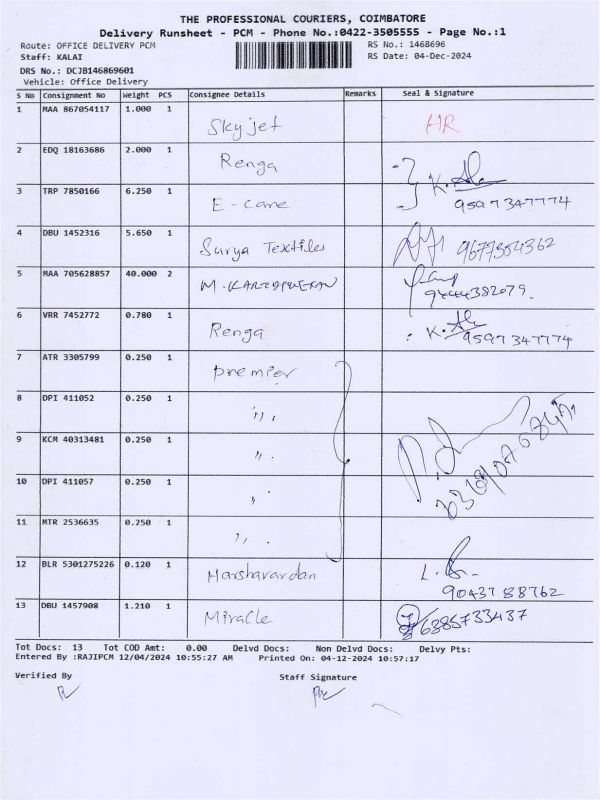 THE PROFESSIONAL COURIERS, COIMBATORE
Delivery Runsheet - PCM - Phone No.:0422-3505555 - Page No.:1
Route: OFFICE DELIVERY PCM RS No.: 1468696
Staff: KALAI RS Date: 04-Dec-2024
DRS No.: DCJB146869601
Vehicle: Office Delivery
S No Consignment No Weight PCS Consignee Details Remarks Seal & Signature
1 MAA 867054117 1.000 1 Skyjet HR
2 EDQ 18163686 2.000 1 Renga
3 TRP 7850166 6.250 1 E-care 9597347774
4 DBU 1452316 5.650 1 Surya Textiles
5 MAA 705628857 40.000 2
6 VRR 7452772 0.780 1 Renga 9597347774
7 ATR 3305799 0.250 1 premier
8 DPI 411052 0.250 1 ",,
9 KCM 40313481 0.250 1 ",
10 DPI 411057 0.250 1 "
11 MTR 2536635 0.250 1 ",,
12 BLR 5301275226 0.120 1 Harshavardan
9043788762
13 DBU 1457908 1.210 1 Miracle 6385733437
Tot Docs: 13 Tot COD Amt: 0.00 Delvd Docs: Non Delvd Docs: Delvy Pts:
Entered By :RAJIPCM 12/04/2024 10:55:27 AM Printed On: 04-12-2024 10:57:17
Verified By Staff Signature